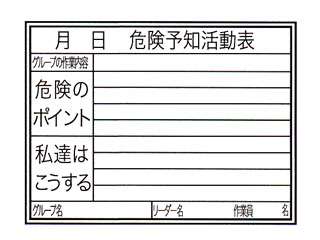 月 日 危険予知活動表
グループの作業内容
危険の
ポイント
私達は
こうする
グループ名 リーダー名 作業員 名